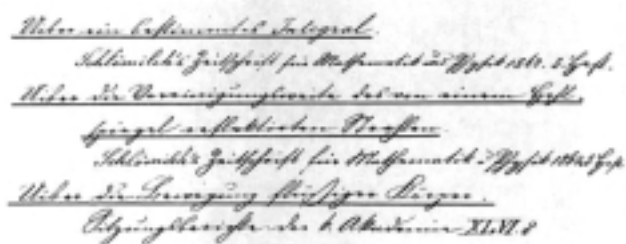 Ueber ein bestimmtes Integral.
Schlömilch's Zeitschrift für Mathematik und Physik 186 . Heft.
Ueber die Vereinigungsweite des von einem Hohl-
spiegel reflektirten Strahlen.
Schlömilch's Zeitschrift für Mathematik u Physik Heft
Ueber die Bewegung flüssiger Körper.
Sitzungsberichte der k. Akademie XLVI. 8